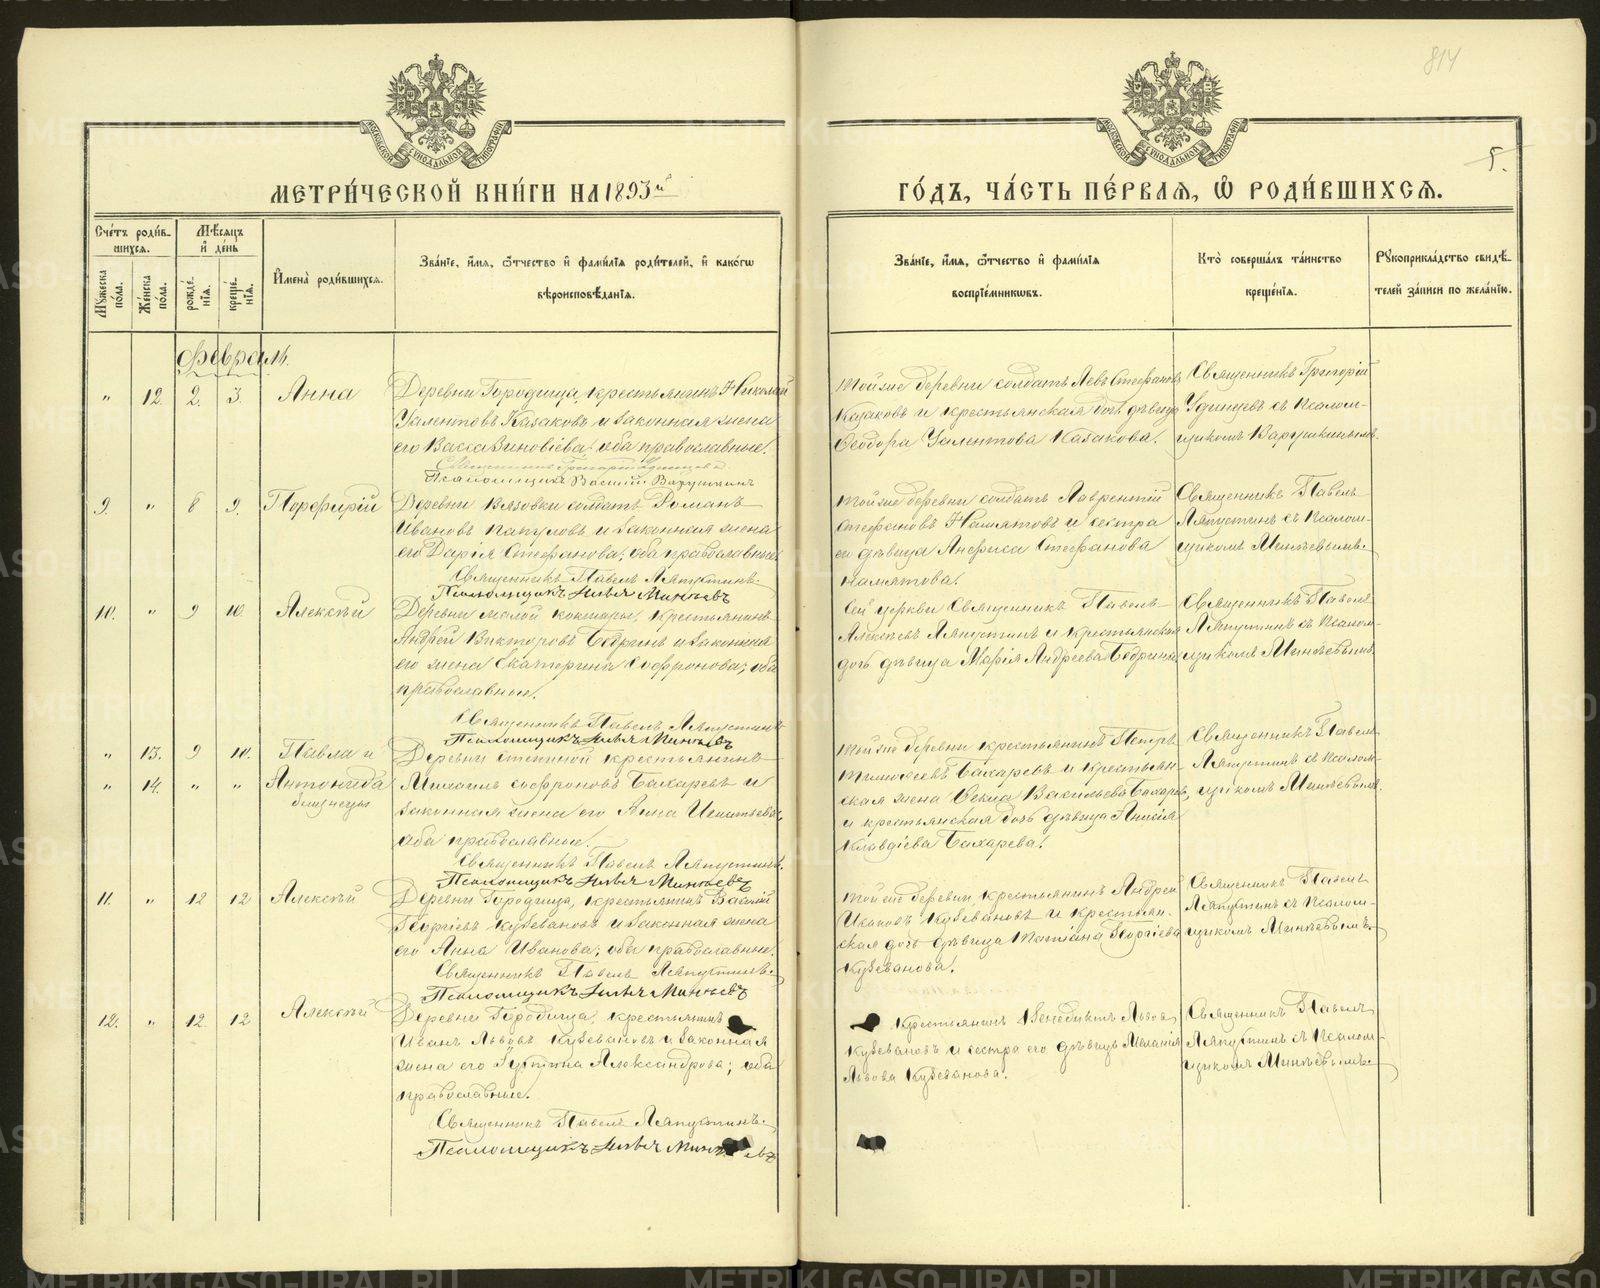 814
5.
МОСКОВСКОЙ СѴНОДАЛЬНОЙ ТИПОГРАФІИ
МОСКОВСКОЙ СѴНОДАЛЬНОЙ ТИПОГРАФІИ
МЕТРИ́ЧЕСКОЙ КНИ́ГИ НА 1893й
ГО́ДЪ, ЧА́СТЬ ПЕ́РВАЯ, Ѡ҆ РОДИ́ВШИХСЯ.
Сче́тъ роди́в-
шихся.
Мѣ́сяцъ
и҆ де́нь
Му́жеска по́ла.
Же́нска по́ла.
рожде́-
нїя.
креще́-
нїя.
И҆мена̀ роди́вшихся.
Зва́нїе, и҆́мя, ѻ҆́тчество и҆ фами́лїя роди́телей, и҆ како́гѡ
вѣроисповѣ́данїя.
Зва́нїе, и҆́мя, ѻ҆́тчество и҆ фами́лїя
воспрїе́мникѡвъ.
Кто̀ соверша́лъ та́инство
креще́нїя.
Рꙋкоприкла́дство свидѣ́-
телей за́писи по жела́нїю.
Февраль.
" 12. 2. 3. Анна
Деревни Городища, крестьянинъ Николай
Уалентовъ Казаковъ и законная жена
его Васса Зиновіева; оба православные.
Священникъ Григорій Удинцевъ
Псаломщикъ Василій Варушкинъ
Тойже деревни солдатъ Левъ Стефановъ
Казаковъ и крестьянская дочь дѣвица
Ѳеодора Уалентова Казакова.
Священникъ Григорій
Удинцевъ съ Псалом-
щикомъ Варушкинымъ.
9. " 8 9. Порфирій
Деревни Вязовки солдатъ Романъ
Ивановъ Папуловъ и законная жена
его Дарія Стефанова; оба православные.
Священникъ Павелъ Ляпустинъ.
Псаломщикъ Илья Минѣевъ
Тойже деревни солдатъ Лаврентій
Стефановъ Намятовъ и сестра
его дѣвица Анфиса Стефанова
Намятова.
Священникъ Павелъ
Ляпустинъ съ Псалом-
щикомъ Минѣевымъ.
10. " 9 10. Алексѣй
Деревни малой кокшары, крестьянинъ
Андрей Викторовъ Бедринъ и законная
его жена Екатерина Софронова; оба
православные.
Священникъ Павелъ Ляпустинъ
Псаломщикъ Илья Минѣевъ
Сей церкви Священникъ Павелъ
Алексѣевъ Ляпустинъ и крестьянская
дочь дѣвица Марія Андреева Бедрина.
Священникъ Павелъ
Ляпустинъ съ Псалом-
щикомъ Минѣевымъ.
" 13. 9 10. Павла и
" 14. " " Антонида
близнецы
Деревни Степиной крестьянинъ
Михаилъ Софроновъ Бахаревъ и
законная жена его Анна Игнатьева,
оба православные.
Священникъ Павелъ Ляпустинъ.
Псаломщикъ Илья Минѣевъ
Тойже деревни крестьянинъ Петръ
Тимоѳеевъ Бахаревъ и крестьян-
ская жена Ѳекла Васильева Бахарева,
и крестьянская дочь дѣвица Анисія
Клавдіева Бахарева.
Священникъ Павелъ
Ляпустинъ съ Псалом-
щикомъ Минѣевымъ.
11. " 12 12 Алексѣй
Деревни Городища, крестьянинъ Василій
Георгіевъ Кузевановъ и законная жена
его Анна Иванова; оба православные.
Священникъ Павелъ Ляпустинъ.
Псаломщикъ Илья Минѣевъ
Тойже деревни, крестьянинъ Андрей
Ивановъ Кузевановъ и крестьян-
ская дочь дѣвица Татіана Георгіева
Кузеванова.
Священникъ Павелъ
Ляпустинъ съ Псалом-
щикомъ Минѣевымъ.
12. " 12. 12 Алексѣй
Деревни Городища, крестьянинъ
Иванъ Львовъ Кузевановъ и законная
жена его Густина Александрова; оба
православные.
Священникъ Павелъ Ляпустинъ.
Псаломщикъ Илья Минѣевъ
крестьянинъ Венедиктъ Львовъ
Кузевановъ и сестра его дѣвица Меланія
Львова Кузеванова.
Священникъ Павелъ
Ляпустинъ съ Псалом-
щикомъ Минѣевымъ.
METRIKI.GASO-URAL.RU